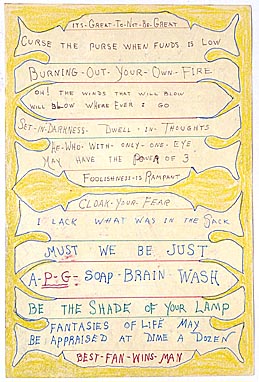 ITS-GREAT-TO-NOT-BE-GREAT
CURSE THE PURSE WHEN FUNDS IS LOW
BURNING-OUT-YOUR-OWN-FIRE
OH! THE WINDS THAT WILL BLOW
WILL BLOW WHERE EVER I GO
SET-IN-DARKNESS. DWELL-IN-THOUGHTS
HE-WHO-WITH-ONLY-ONE-EYE
MAY HAVE THE POWER OF 3
FOOLISHNESS-IS RAMPANT
CLOAK-YOUR-FEAR
I LACK WHAT WAS IN THE SACK
MUST WE BE JUST
A-P-G- SOAP-BRAIN-WASH
BE THE SHADE OF YOUR LAMP
FANTASIES OF LIFE MAY
BE APPRAISED AT DIME A DOZEN
BEST-FAN-WINS-MAN